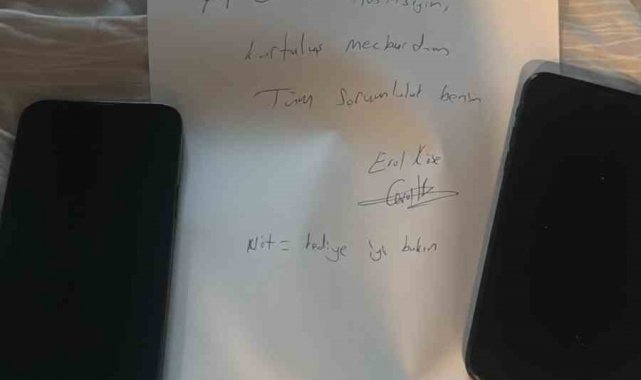 kurtuluş mecburdum
Tüm Sorumluluk benim
Erol Köse
Not = hediye iyi bakın